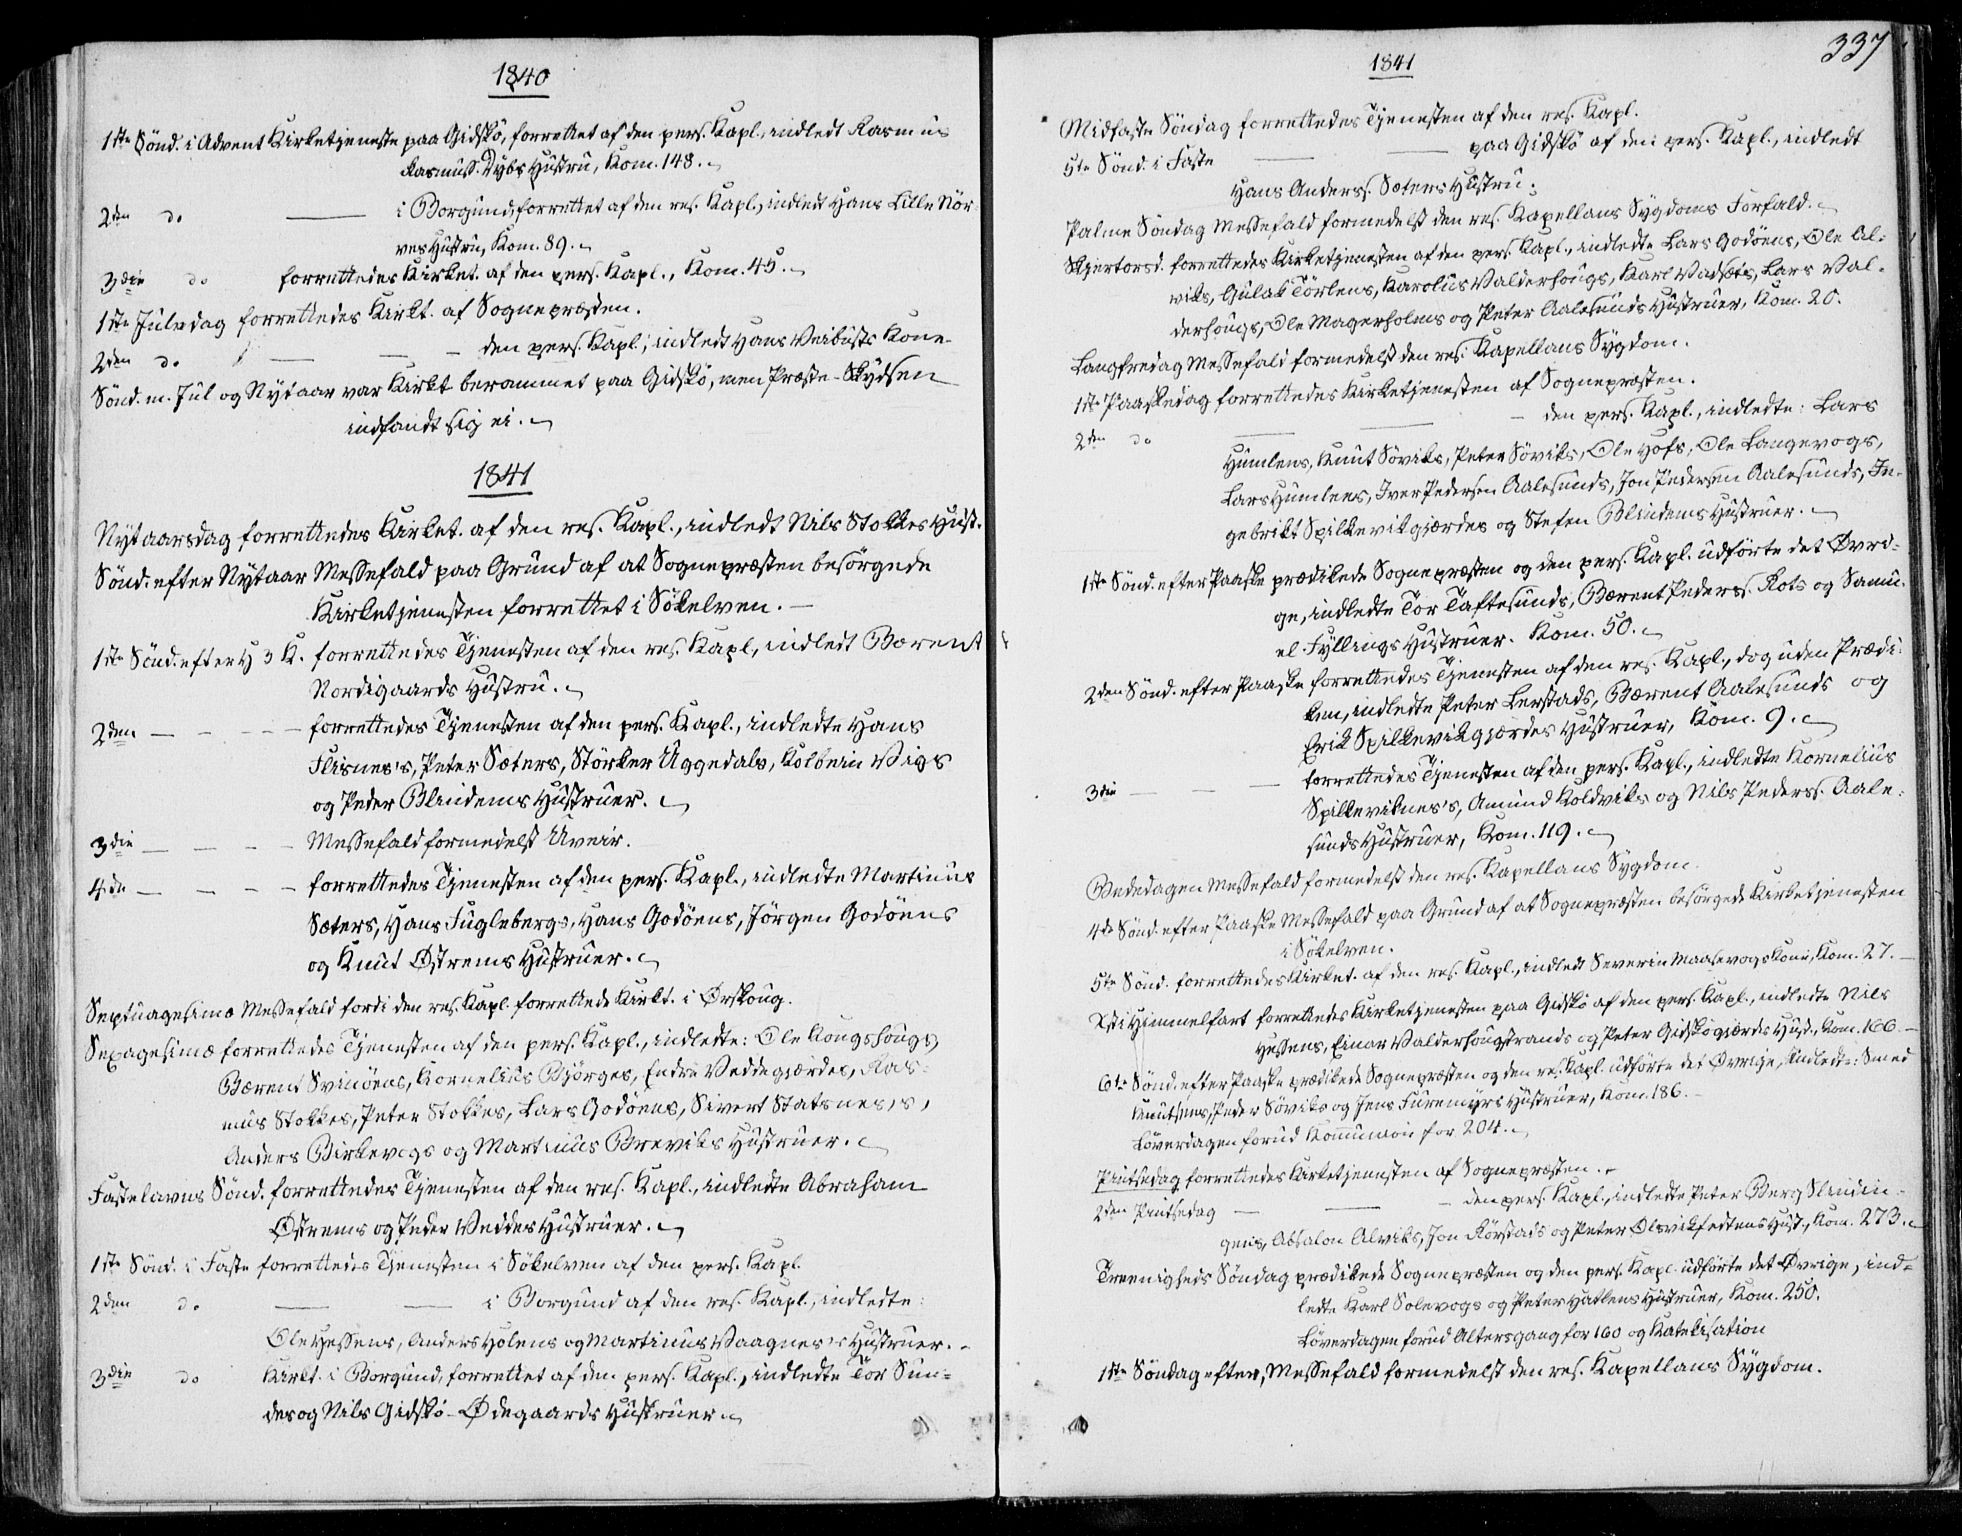 1840
1ste Sönd. i Advent Kirketjeneste paa Gidskö, forrettet af den pers. Kapl., indledt Rasmus
Rasmuss. Dybs Hustru, Kom. 148.
2den do — i Borgund, forrettet af den res. Kapl., indledt Hans Lille Nör-
ves Hustru, Kom. 89.
3die do forrettedes Kirket. af den pers. Kapl., Kom. 45.
1ste Juledag forrettedes Kirkt. af Sognepræsten.
2den do — — — den pers. Kapl., indledt Hans Veibusts Kone
Sönd. m. Jul og Nytaar var Kirkt. berammet paa Gidskö, men Præste-Skydsen
indfandt sig ei.
1841
Nytaarsdag forrettedes Kirket. af den res. Kapl., indledt Nils Stokkes Hust.
Sönd. efter Nytaar Messefald paa Grund af at Sognepræsten besörgede
Kirketjenesten forrettet i Sökelven. —
1ste Sönd. efter H 3 K. forrettedes Tjenesten af den res. Kapl., indledt Bærent
Nordigaards Hustru.
2den — — — — forrettedes Tjenesten af den pers. Kapl., indledte Hans
Flisnes's, Peter Sæters, Störker Uggedals, Kolbein Vigs
og Peder Blindems Hustruer.
3die — — — — Messefald formedelst Uveir.
4de — — — — forrettedes Tjenesten af den pers. Kapl., indledte Martinus
Sæters, Hans Fuglebergs, Hans Godöens, Jörgen Godöens
og Knut Østrems Hustruer.
Septuagesimæ Messefald fordi den res. Kapl. forrettede Kirkt. i Ørskoug.
Sexagesimæ forrettedes Tjenesten af den pers. Kapl., indledte: Ole Kongshougs,
Bærent Svinöens, Kornelius Björges, Endre Veddegjærdes, Ras-
mus Stokkes, Peter Stokkes, Lars Godöens, Sivert Statsnes's,
Anders Birkevogs og Martinus Breviks Hustruer.
Fastelavns Sönd. forrettedes Tjenesten af den res. Kapl., indledte Abraham
Østrems og Peder Veddes Hustruer.
1ste Sönd. i Faste forrettedes Tjenesten i Sökelven af den pers. Kapl.
2den do — — i Borgund af den res. Kapl., indledte:
Ole Hessens, Anders Holens og Martinus Vaagnes's Hustruer.
3die do Kirkt. i Borgund, forrettet af den pers. Kapl., indledte Tor Sun-
des og Nils Gidskö-Ødegaards Hustruer.
337
1841
Midfaste Söndag forrettedes Tjenesten af den res. Kapl.
5te Sönd. i Faste — — paa Gidskö af den pers. Kapl., indledt
Hans Anderss. Sæters Hustru.
Palme Söndag Messefald formedelst den res. Kapellans Sygdoms Forfald.
Skjertorsd. forrettedes Kirketjenesten af den pers. Kapl., indledte Lars Godöens, Ole Al-
viks, Gulak Törlens, Karolus Valderhougs, Karl Vadsets, Lars Val-
derhougs, Ole Magerholms og Peter Aalesunds Hustruer, Kom. 20.
Langfredag Messefald formedelst den res. Kapellans Sygdom.
1ste Paaskedag forrettedes Kirketjenesten af Sognepræsten.
2den do — — — den pers. Kapl., indledte: Lars
Humlens, Knut Söviks, Peter Söviks, Ole Hofs, Ole Langevogs,
Lars Humlens, Iver Pedersen Aalesunds, Jon Pedersen Aalesunds, In-
gebrikt Spilkevikgjærdes og Stefen Blindems Hustruer.
1ste Sönd. efter Paaske prædikede Sognepræsten og den pers. Kapl. udförte det Øvri-
ge, indledte Tor Taftesunds, Bærent Pederss. Rots og Samu-
el Fyllings Hustruer. Kom. 50.
2den Sönd. efter Paaske forrettedes Tjenesten af den res. Kapl., dog uden Prædi-
ken, indledte Peter Lerstads, Bærent Aalesunds og
Erik Spilkevikgjærdes Hustruer, Kom. 9.
3die — — — forrettedes Tjenesten af den pers. Kapl., indledte Kornelius
Spilkeviknes's, Amund Koldviks og Nils Pederss. Aale-
sunds Hustruer, Kom. 119.
Bededagen Messefald formedelst den res. Kapellans Sygdom.
4de Sönd. efter Paaske Messefald paa Grund af at Sognepræsten besörgede Kirketjenesten
i Sökelven.
5te Sönd. forrettedes Kirket. af den res. Kapl., indledt Severin Maasevogs Kone, Kom. 27. —
Xsti Himmelfart forrettedes Kirketjenesten paa Gidskö af den pers. Kapl., indledte Nils
Hessens, Einar Valderhougstrands og Peter Gidskögjærdes Hust., Kom. 166. —
6te Sönd. efter Paaske prædikede Sognepræsten og den res. Kapl. udförte det Øvrige, indledte: Smed
Knutsens, Peder Söviks og Jens Furemyrs Hustruer, Kom. 186. —
Löverdagen forud Kommunion for 204.
Pintsedag forrettedes Kirketjenesten af Sognepræsten.
2den Pintsedag — — — den pers. Kapl., indledte Peter Berg Slindin-
gens, Absalon Alviks, Jon Rörstads og Peter Ølsvikfedtens Hust., Kom. 273.
Treenigheds Söndag prædikede Sognepræsten og den pers. Kapl. udförte det Øvrige, ind-
ledte Karl Solevogs og Peter Hatlens Hustruer, Kom. 250.
Löverdagen forud Altersgang for 160 og Katekisation
1ste Söndag efter, Messefald formedelst den res. Kapellans Sygdom.